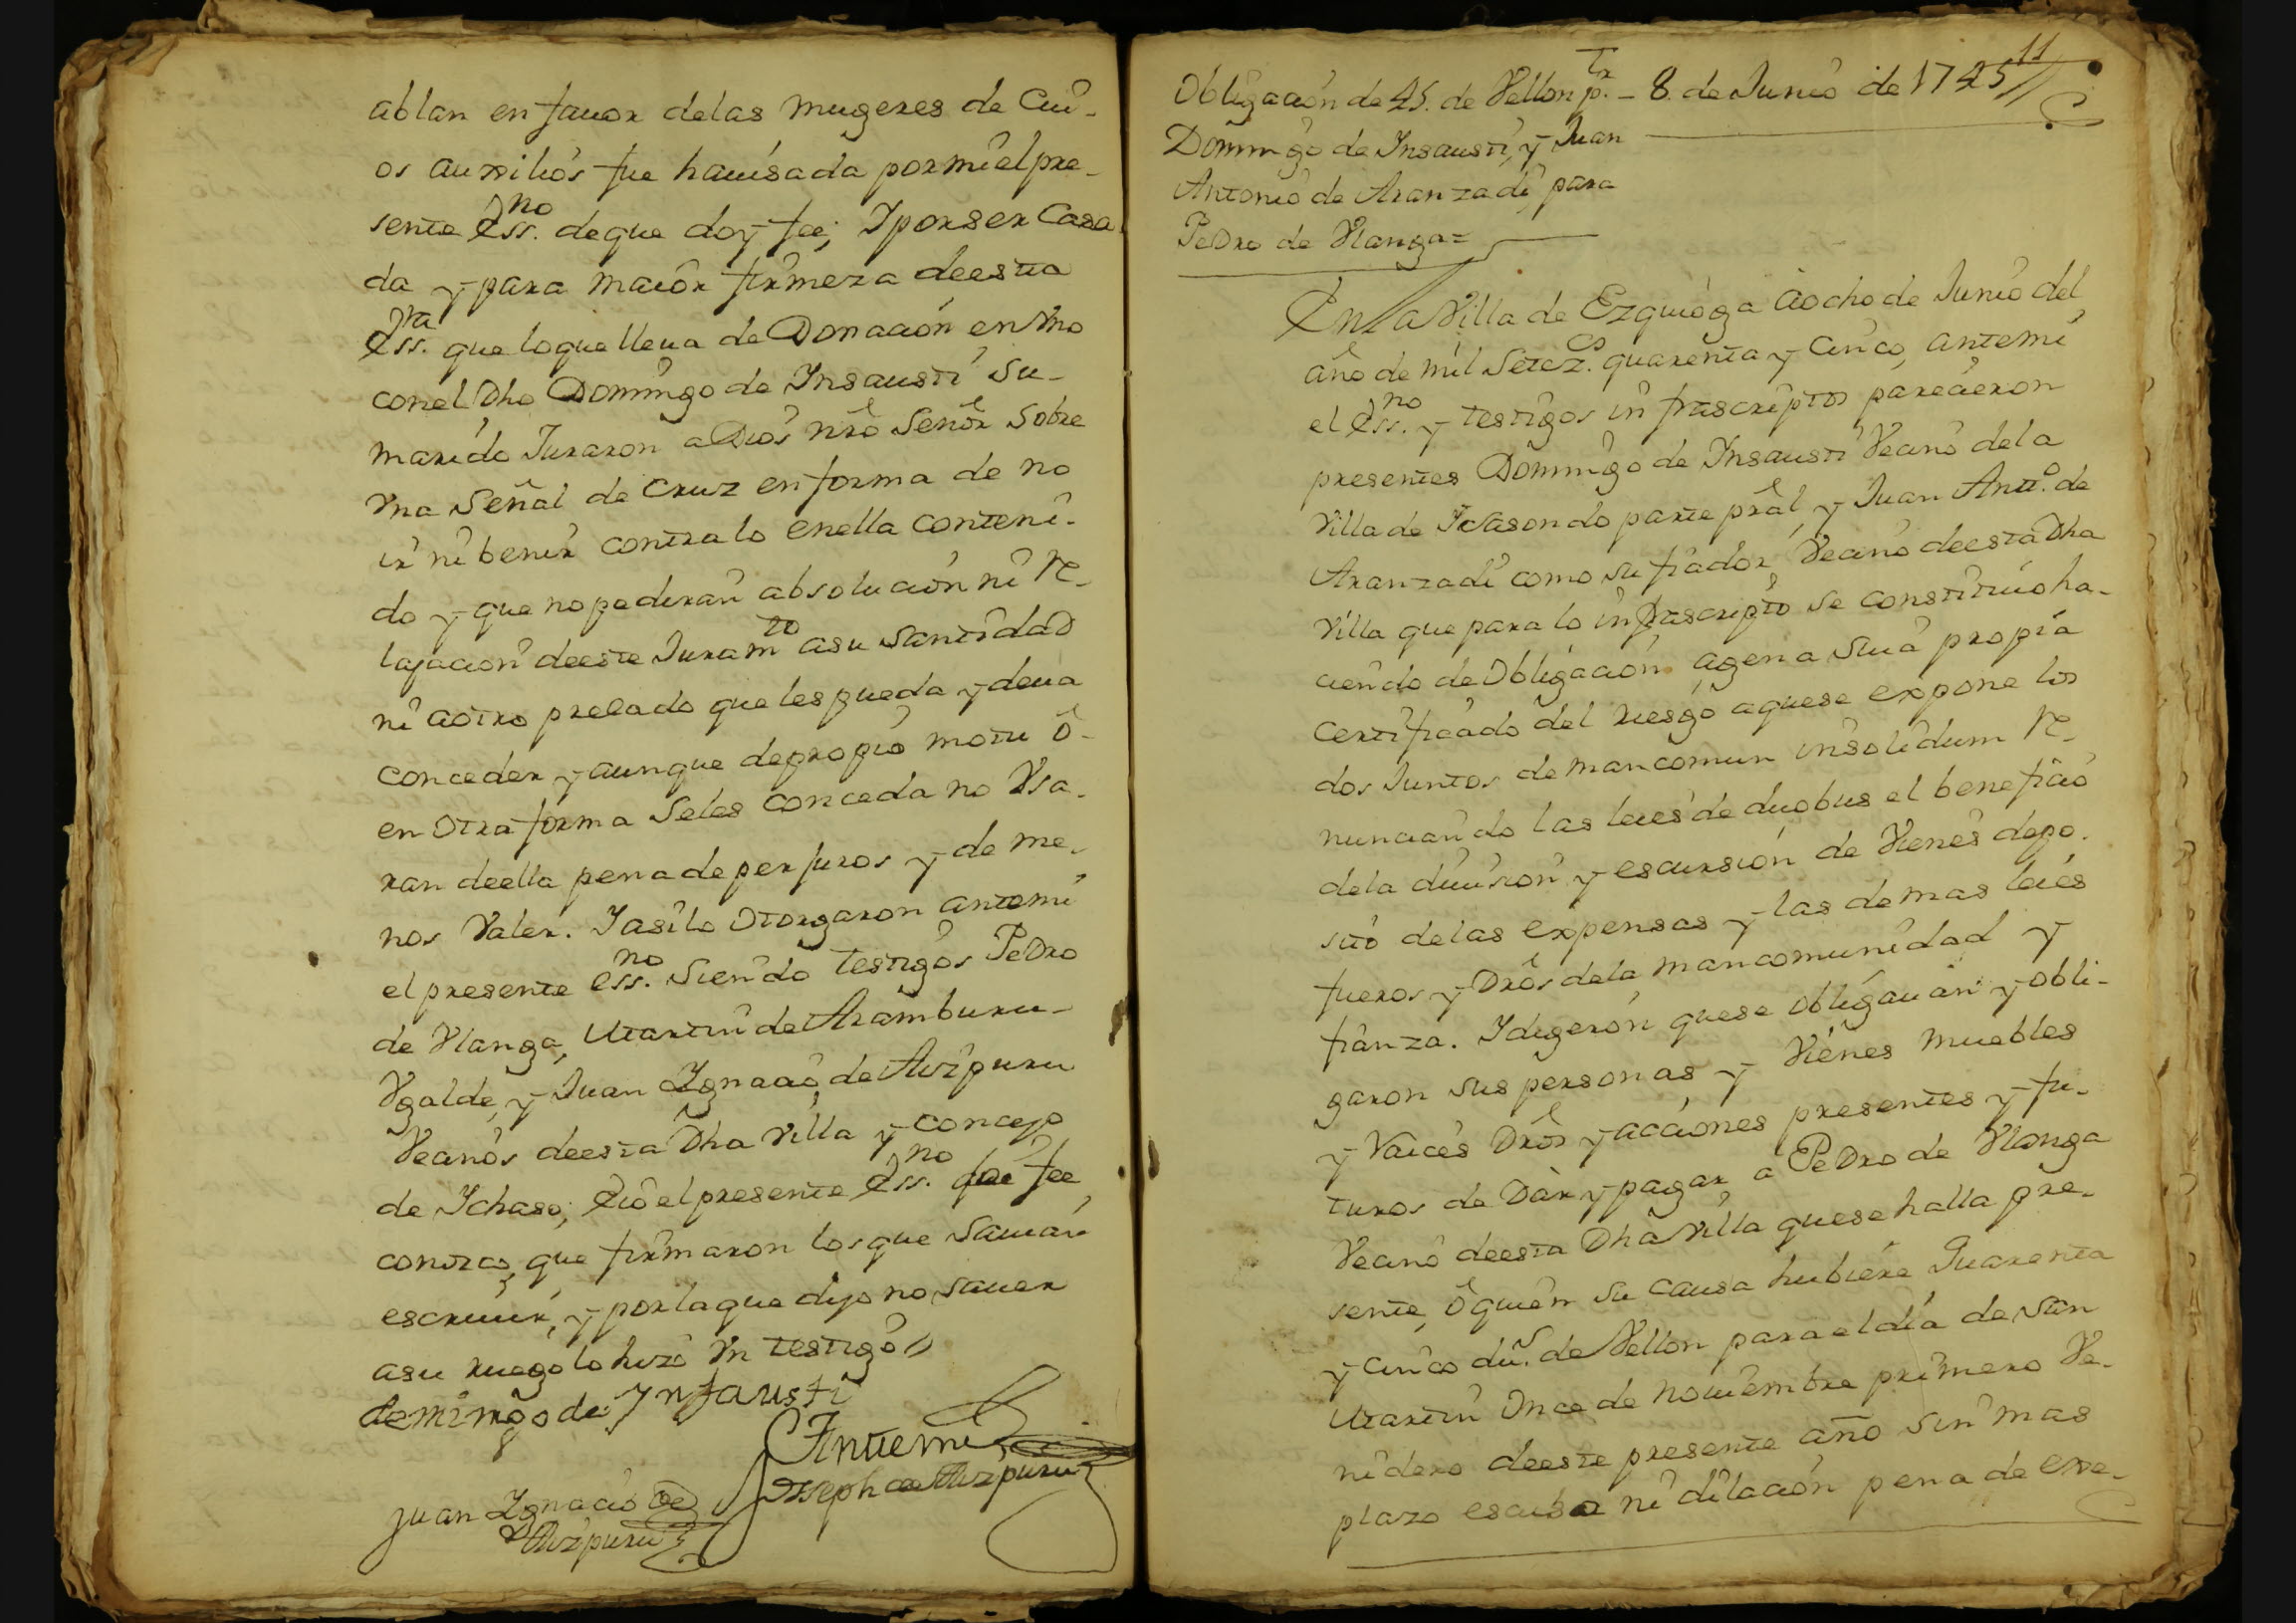 ablan en fauor delas mugeres de Cui-
os auxilios fue hauisada por mi el pre-
sente Essno. de que doy fee; Y por ser Casa-
da y para maior firmeza de esta
Essra. que lo que lleua de Donacion, en Vno
con el Dho Domingo de Insausti su-
marido Juraron a Dios nrô Señor sobre
Vna Señal de Cruz en forma de no
ir ni benir contra lo en ella conteni-
do y que no pediran absolucion ni re-
lajacion de este Juramto a su Santidad
ni a otro prelado que les pueda y deua
conceder y aunque de propio motu ô
en otra forma se les conceda no Vsa-
ran de ella pena de perjuros y de me-
nos Valer. Y asi lo otorgaron ante mi
el presente essno. siendo testigos Pedro
de Vlanga, Martin de Aramburu-
Vgalde, y Juan Ignacio de Aizpuru
Vecinos de esta Dha Villa y concejo
de Ichaso; e io el presente Essno. fee
conozco, que firmaron los que sauian
escriuir, y por la que dijo no sauer
a su ruego lo hizo Vn testigo
domingo de Insausti
Ante mi
Joseph de Aizpuru
Juan Ignacio de
Aizpuru
11
Obligacion de 45. de Vellon pr. - 8. de Junio de 1745
Domingo de Insausti, y Juan
Antonio de Aranzadi, para
Pedro de Vlanga=
En la Villa de Ezquioga a ocho de Junio del
año de mil Setezos. quarenta y Cinco, ante mi
el Essno. y testigos infrascriptos parecieron
presentes Domingo de Insausti Vecino de la
Villa de Icsasondo parte prâl, y Juan Antto. de
Aranzadi como su fiador Vecino de esta Dha
Villa que para lo infrascripto se constituio ha-
ciendo de Obligacion agena sua propia
Certificado del riesgo a que se expone los
dos Juntos de mancomun insolidum re-
nunciando las leies de duobus el beneficio
de la diuision y escursion de Vienes depo-
sito de las expensas y las demas leies
fueros y Drôs de la mancomunidad y
fianza. Y digeron que se obligauan y obli-
garon sus personas y Vienes muebles
y Raices Drôs y acciones presentes y fu-
turos de Dar y pagar â Pedro de Vlanga
Vecino de esta Dha Villa que se halla pre-
sente, ô quien su causa hubiere Quarenta
y cinco dus. de Vellon para el dia de San
Martin Once de Nouiembre primero Ve-
nidero de este presente año sin mas
plazo escusa ni dilacion pena de exe-